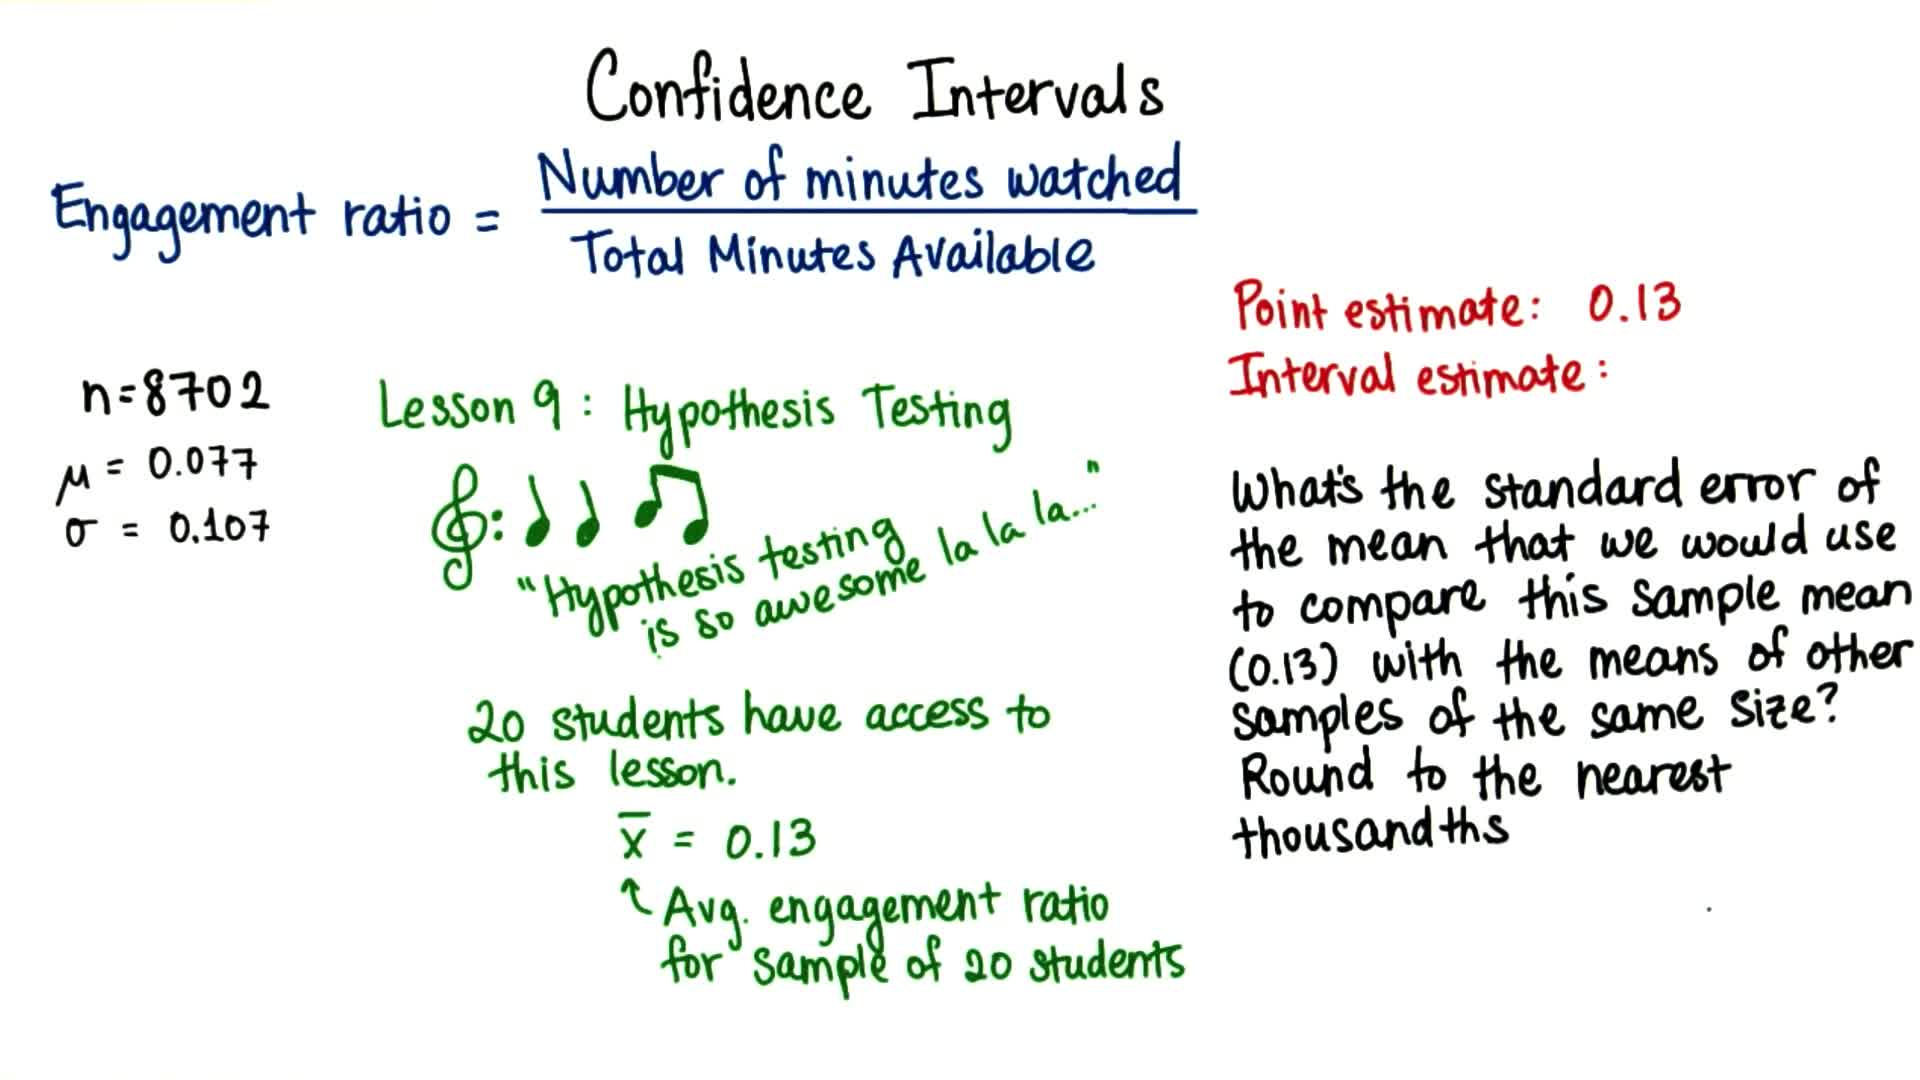 Confidence Intervals
Engagement ratio = Number of minutes watched
Total Minutes Available
n=8702
μ = 0.077
σ = 0.107
Lesson 9: Hypothesis Testing
"Hypothesis testing
is so awesome la la la..."
20 students have access to
this lesson.
x̅ = 0.13
Avg. engagement ratio
for sample of 20 students
Point estimate: 0.13
Interval estimate:
What's the standard error of
the mean that we would use
to compare this sample mean
(0.13) with the means of other
samples of the same size?
Round to the nearest
thousandths